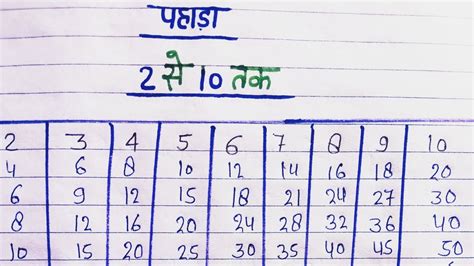 पहाड़ा
2 से 10 तक
2 3 4 5 6 7 8 9 10
4 6 8 10 12 14 16 18 20
6 9 12 15 18 21 24 27 30
8 12 16 20 24 28 32 36 40
10 15 20 25 30 35 40 45 50